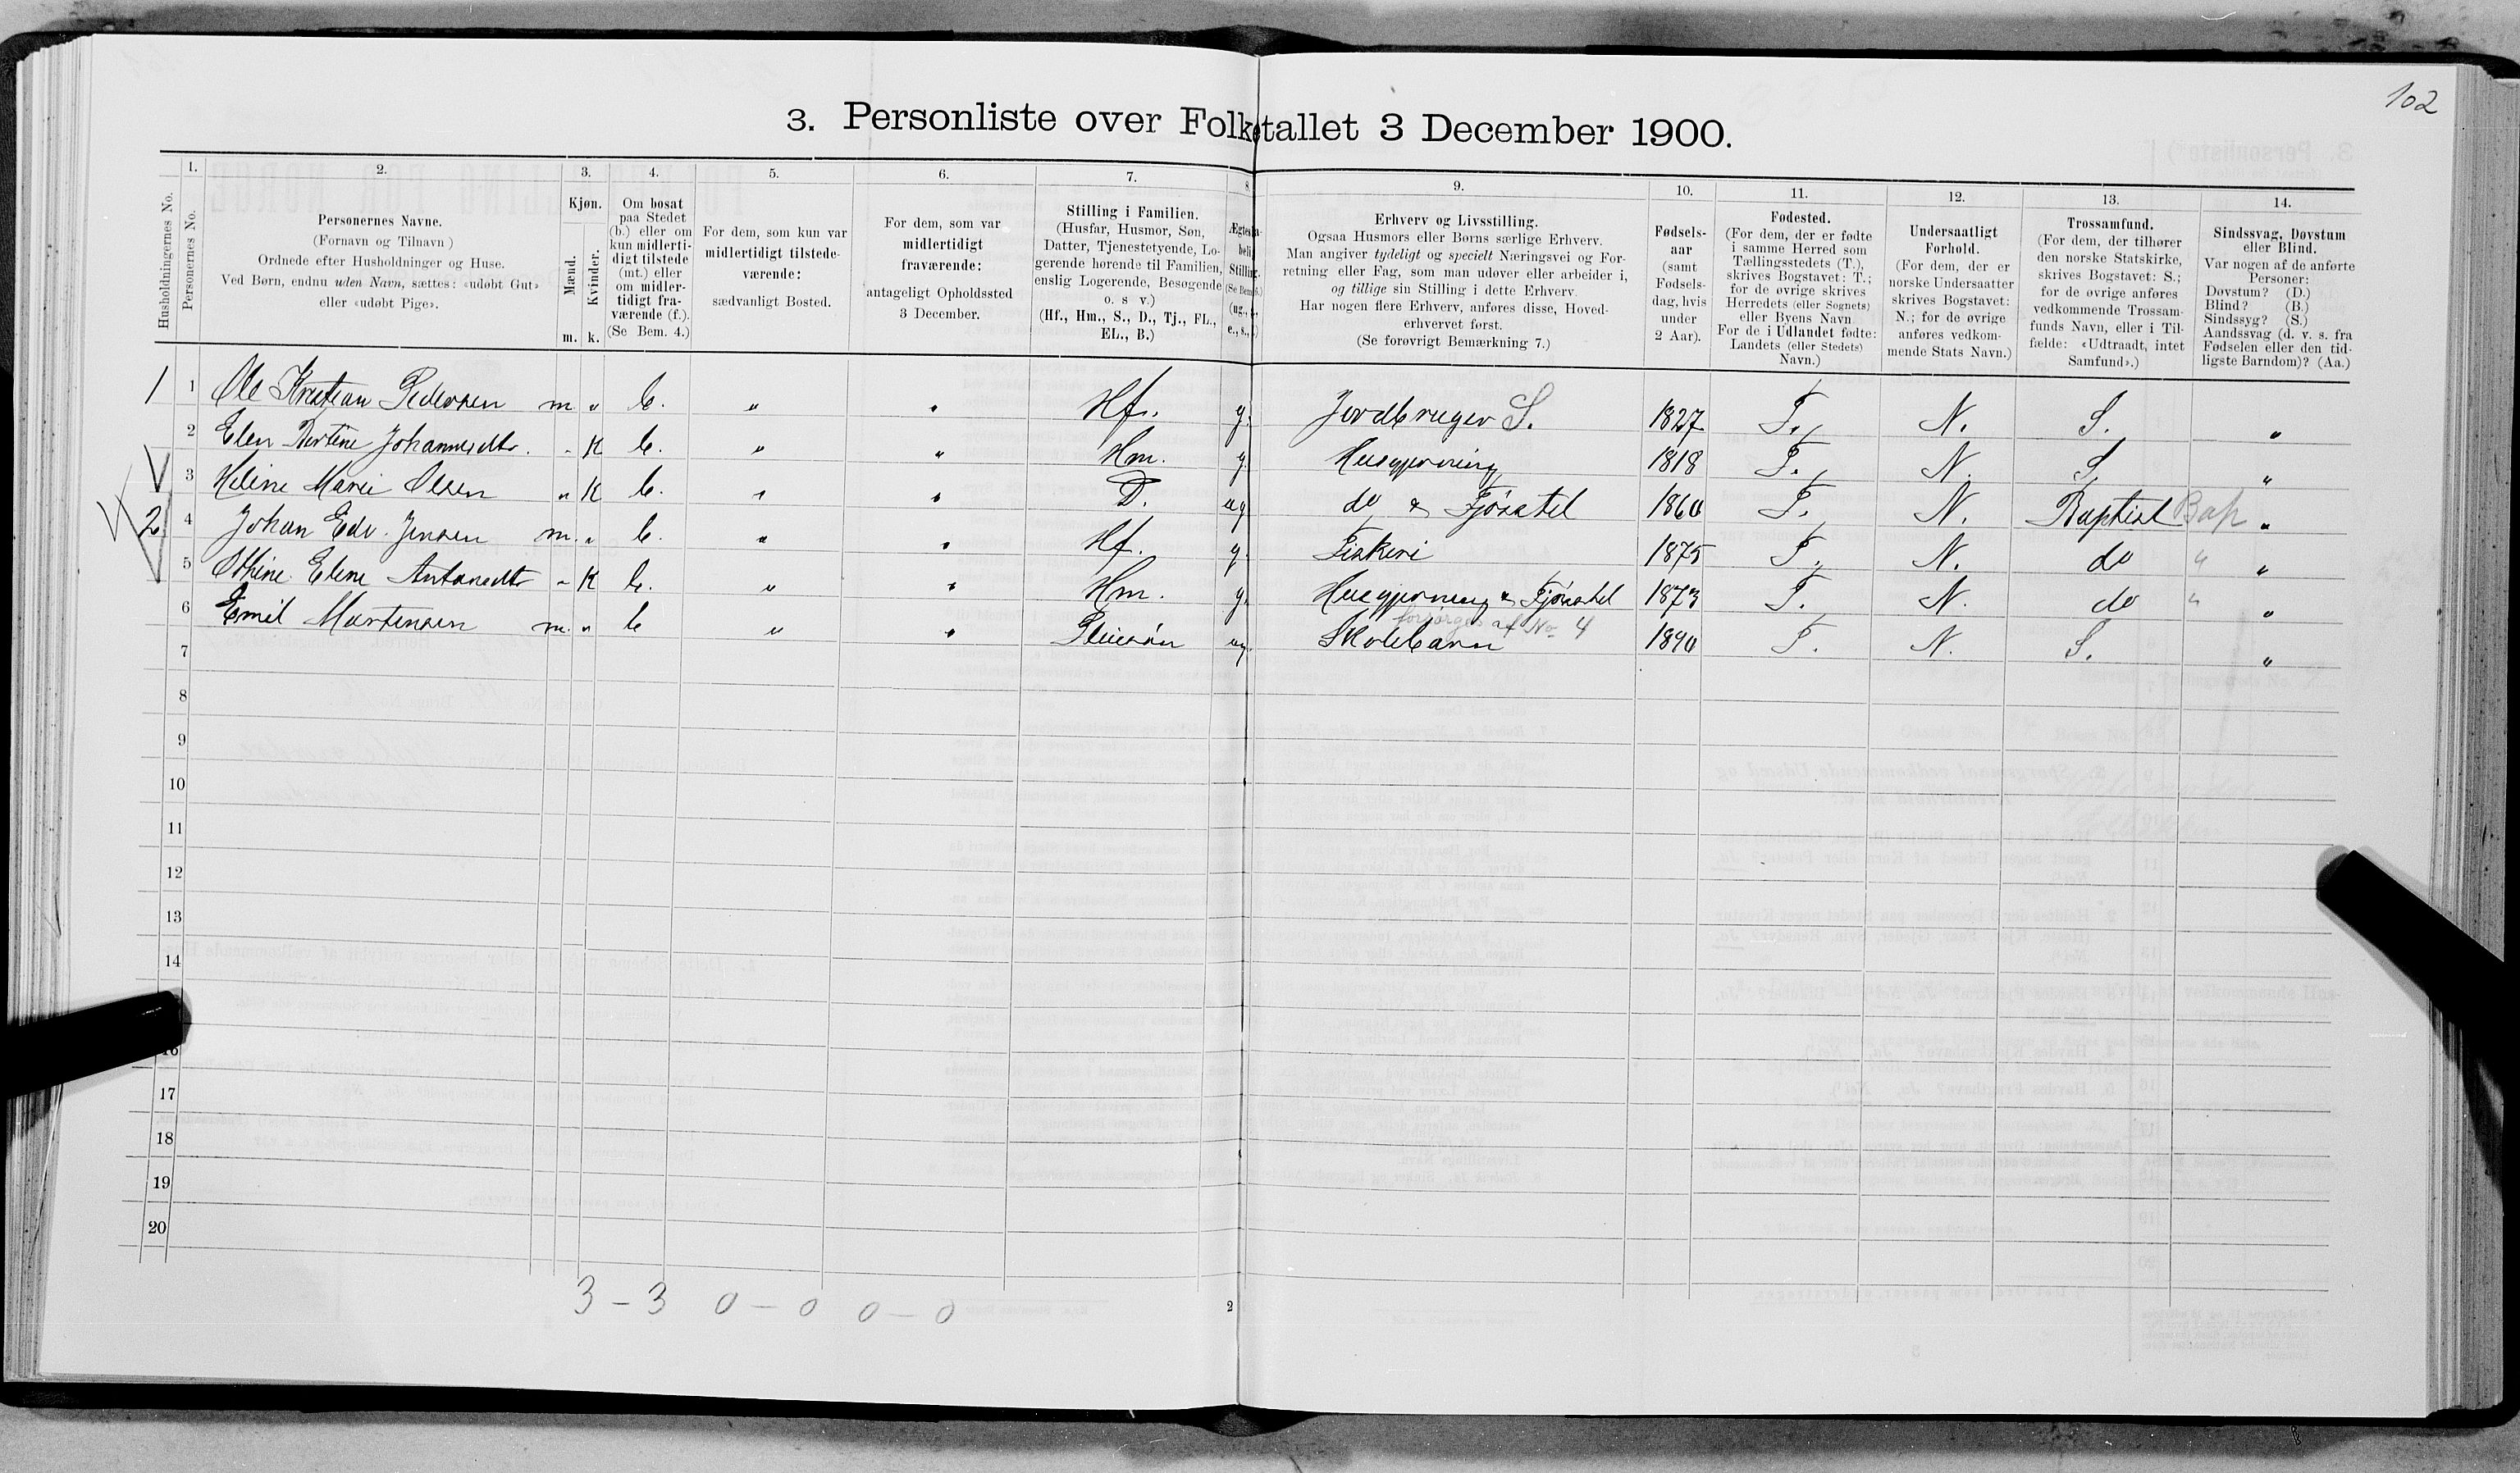 102
3. Personliste over Folketallet 3 December 1900.
Husholdningernes No.
1.
Personernes No.
2.
Personernes Navne.
(Fornavn og Tilnavn )
Ordnede efter Husholdninger og Huse.
Ved Børn, endnu uden Navn, sættes: «udøbt Gut»
eller «udøbt Pige».
3.
Kjøn.
Mænd.
Kvinder.
m. k.
4.
Om bosat
paa Stedet
(b.) eller om
kun midlerti-
digt tilstede
(mt.) eller
om midler-
tidigt fra-
værende (f.).
(Se Bem. 4.)
5.
For dem, som kun var
midlertidigt tilstede-
værende:
sædvanligt Bosted.
6.
For dem, som var
midlertidigt
fraværende:
antageligt Opholdssted
3 December.
7.
Stilling i Familien.
(Husfar, Husmor, Søn,
Datter, Tjenestetyende, Lo-
gerende hørende til Familien,
enslig Logerende, Besøgende
o. s v.)
(Hf., Hm., S., D., Tj., FL.,
EL., B.)
8.
9.
Erhverv og Livsstilling.
Ogsaa Husmors eller Børns særlige Erhverv.
Man angiver tydeligt og specielt Næringsvei og For-
retning eller Fag, som man udøver eller arbeider i,
og tillige sin Stilling i dette Erhverv.
Har nogen flere Erhverv, anføres disse, Hoved-
erhvervet først.
(Se forøvrigt Bemærkning 7.)
10.
Fødsels-
aar
(samt
Fødsels-
dag, hvis
under
2 Aar).
11.
Fødested.
(For dem, der er fødte
i samme Herred som
Tællingsstedets (T.),
skrives Bogstavet: T.;
for de øvrige skrives
Herredets (eller Sognets)
eller Byens Navn
For de i Udlandet fødte:
Landets (eller Stedets)
Navn.)
12.
Undersaatligt
Forhold.
(For dem, der er
norske Undersaatter
skrives Bogstavet:
N.; for de øvrige
anføres vedkom-
mende Stats Navn.)
13.
Trossamfund.
(For dem, der tilhører
den norske Statskirke,
skrives Bogstavet: S.;
for de øvrige anføres
vedkommende Trossam-
funds Navn, eller i Til-
fælde: «Udtraadt, intet
Samfund».)
14.
Sindssvag, Døvstum
eller Blind.
Var nogen af de anførte
Personer:
Døvstum? (D.)
Blind? (B.)
Sindssyg? (S.)
Aandssvag (d. v. s. fra
Fødselen eller den tid-
ligste Barndom)? (Aa.)
1 1 Ole Kristian Pedersen m „ b. „ „ Hf. g. Jordbruger S. 1827 T. N. S. „
2 Elen Bertine Johannesdtr. „ K b. „ „ Hm. g. Husgjerning 1818 T. N. S „
3 Heline Marie Olsen „ K b. „ „ D. ug do & Fjøsstel 1860 T. N. Baptist Bap „
2 4 Johan Edv. Jensen m. „ b. „ „ Hf. g. Fiskeri 1875 T. N. do „ „
5 Othine Elene Antonedtr „ K b. „ „ Hm. g. Husgjerning & Fjøsstel 1873 T. N. do „ „
6 Emil Mortensen m. „ b „ „ Pleiesøn ug. Skolebarn forsørges af No 4 1890 T. N. S. „
7
8
9
10
11
12
13
14
16
17
18
19
20
3 - 3 0 - 0 0 - 0
2